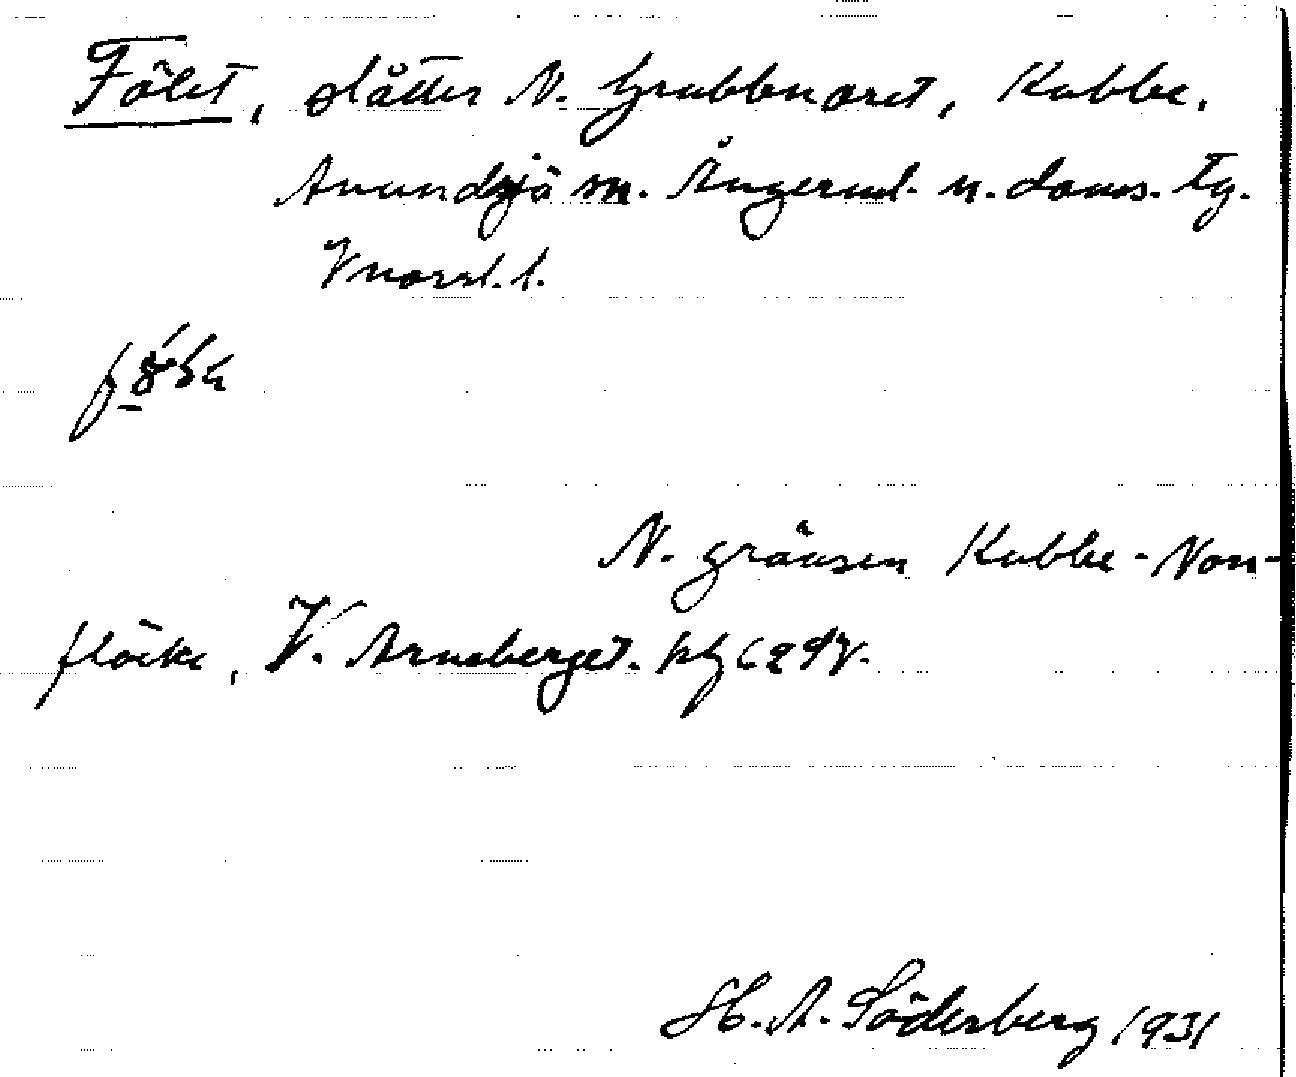 Fölet, slåtter N. Grubbmoret, Kubbe,
Anundsjö sn. Ångerml. n. doms. tg.
Vnorrl. l.
N. gränsen Kubbe - Non-
flöcke, V. Arnsberget.
H. A. Söderberg 1931